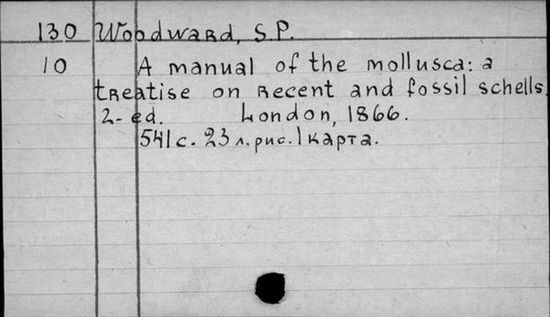 130 Woodward, S.P.
10 A manual of the mollusca: a
treatise on recent and fossil schells.
2-ed. London, 1866.
541 с. 23 л. рис. 1 карта.